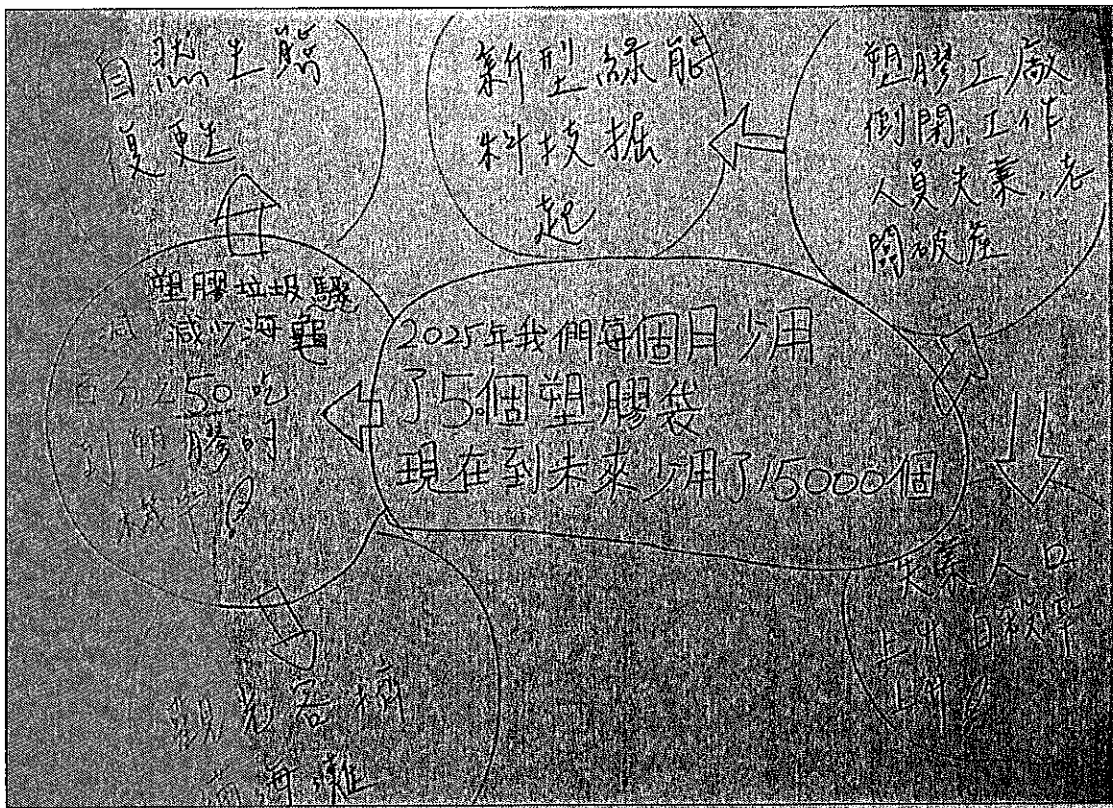 自然生態
復甦
新型綠能
科技掘
起
塑膠工廠
倒閉,工作
人員失業,老
闆破產
塑膠垃圾驟
減 減少海龜
百分之50吃
到塑膠的
機率
2025年我們每個月少用
了5個塑膠袋
現在到未來少用了15000個
失業人口
上升 自殺率
上升
觀光客
海灘